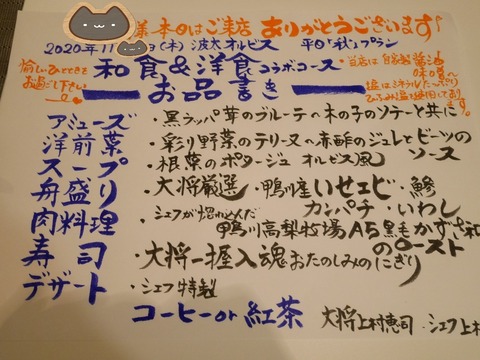 様 本日はご来店 ありがとうございます
2020年11 日(木) 波太オルビス 平日「秋」プラン
愉しいひとときをお過ごし下さい
和食&洋食コラボコース
お品書き
・当店は自家製醤油
味噌
塩はミネラルたっぷり
を使用しております。
アミューズ ・黒ラッパ茸のブルーテ 木の子のソテーと共に
洋前菜 ・彩り野菜のテリーヌ 赤酢のジュレとビーツのソース
スープ ・根菜のポタージュ オルビス風
舟盛り ・大将厳選・鴨川産いせエビ・鯵
カンパチ・いわし
肉料理 ・シェフが惚れ込んだ 鴨川高梨牧場A5黒毛かずさ和
のロースト
寿司 ・大将一握入魂 おたのしみのにぎり
デザート ・シェフ特製
コーヒーor紅茶
大将上村恵司・シェフ上村